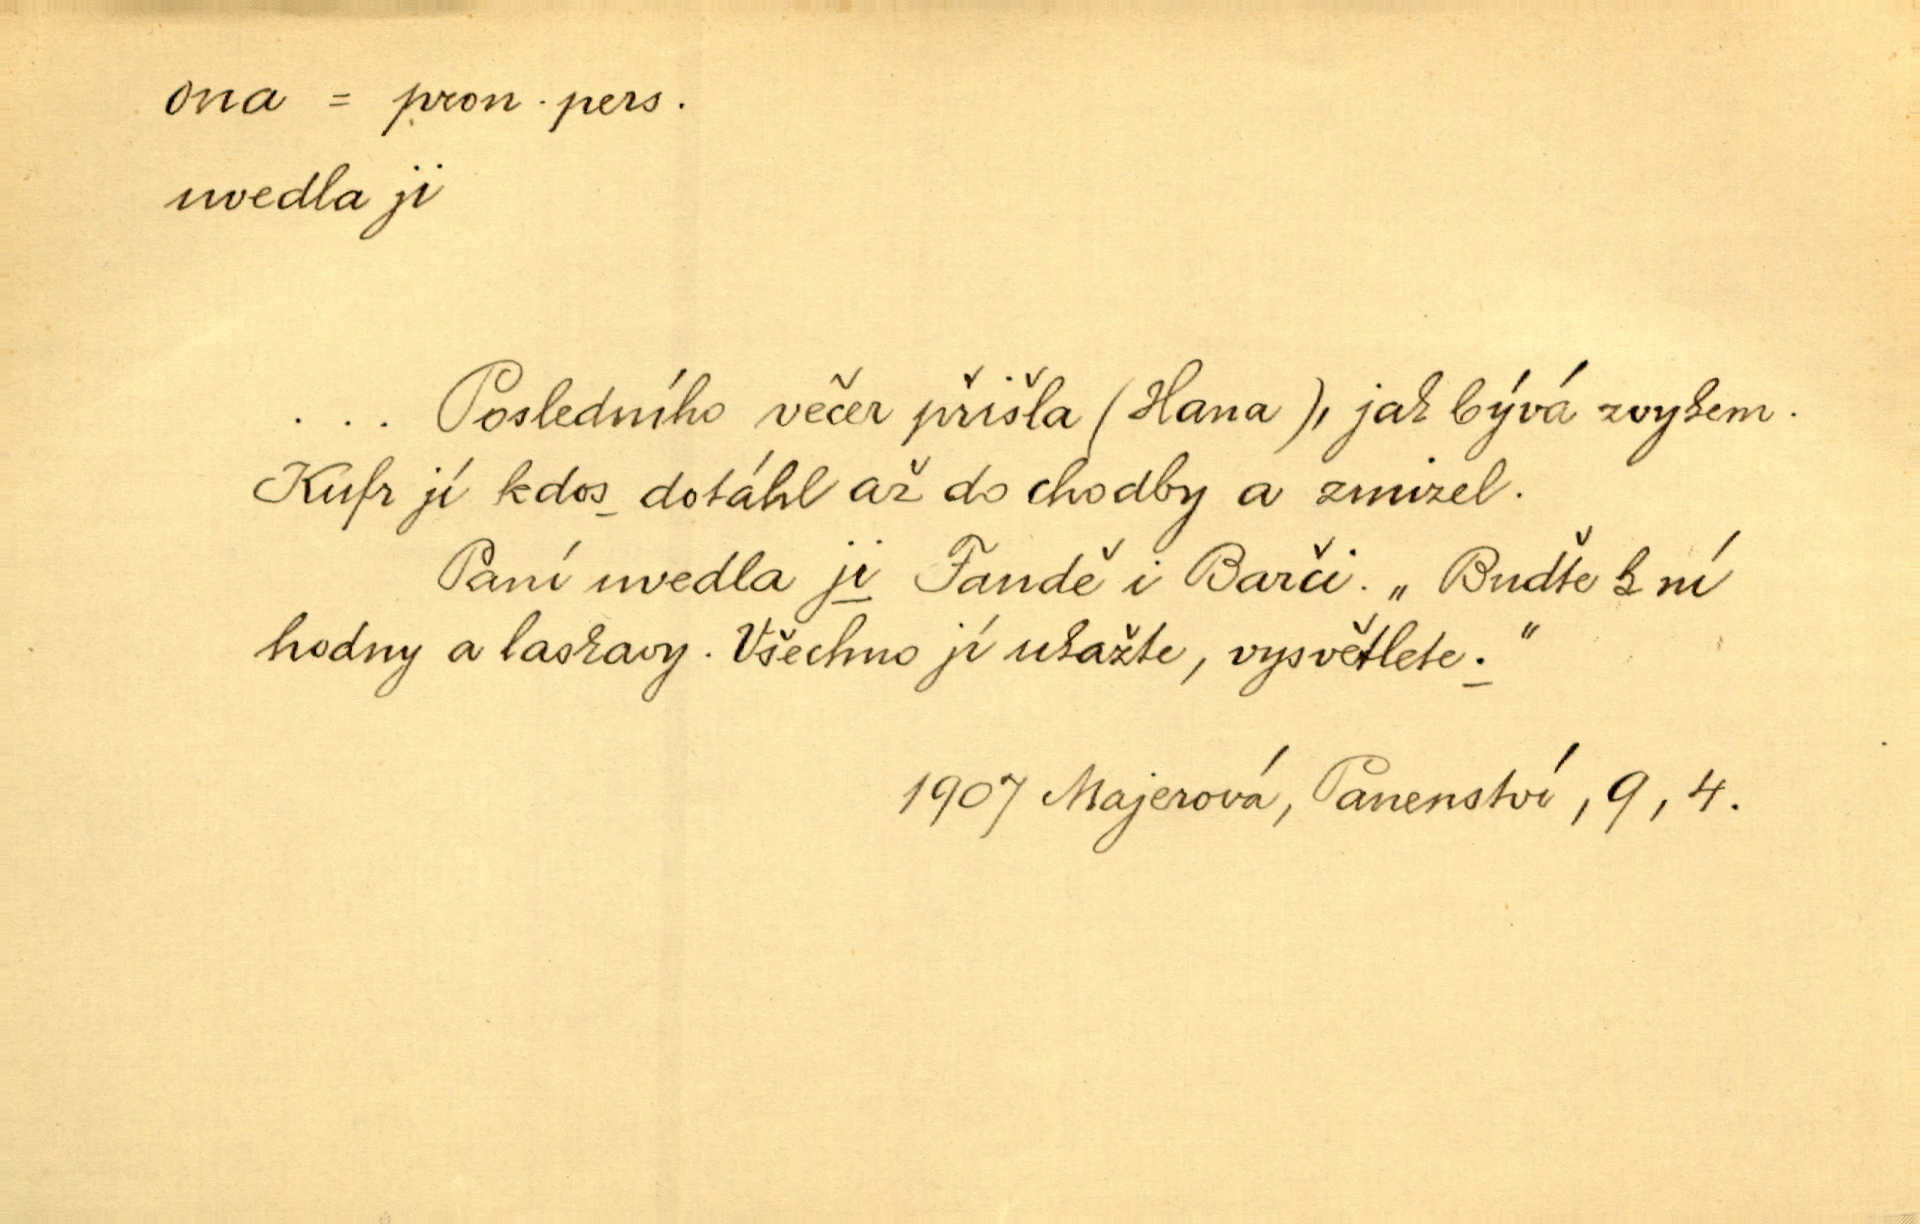 ona = pron. pers.
uvedla ji
... Posledního večer přišla (Hana), jak bývá zvykem.
Kufr jí kdos dotáhl až do chodby a zmizel.
Paní uvedla ji Fandě i Barči. „Buďte k ní
hodny a laskavy. Všechno jí ukažte, vysvětlete."
1907 Majerová, Panenství, 9, 4.